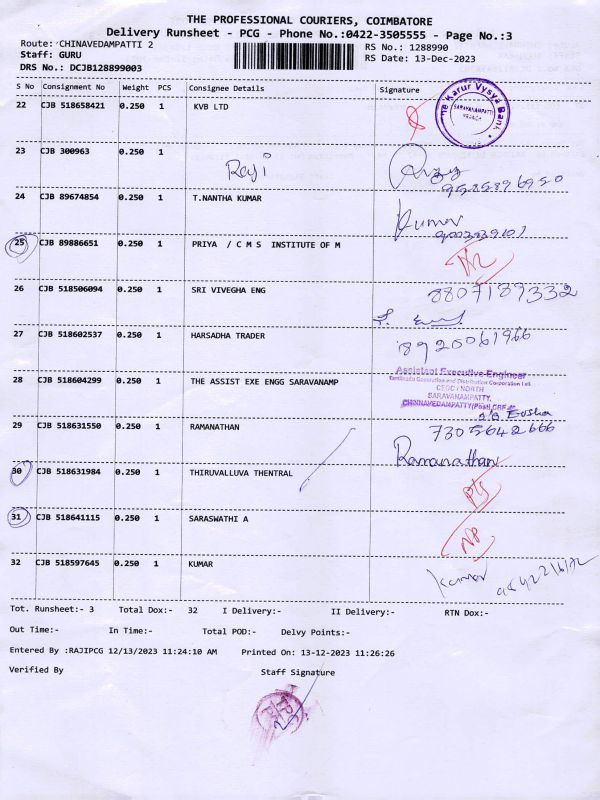 THE PROFESSIONAL COURIERS, COIMBATORE
Delivery Runsheet - PCG - Phone No.:0422-3505555 - Page No.:3
Route: CHINAVEDAMPATTI 2
RS No.: 1288990
Staff: GURU
RS Date: 13-Dec-2023
DRS No.: DCJB128899003
S No Consignment No Weight PCS Consignee Details Signature
22 CJB 518658421 0.250 1 KVB LTD
The Karur Vysya Bank
SARAVANAMPATTI
23 CJB 300963 0.250 1
Raji
24 CJB 89674854 0.250 1 T.NANTHA KUMAR
Kumar
25 CJB 89886651 0.250 1 PRIYA / C M S INSTITUTE OF M
26 CJB 518506094 0.250 1 SRI VIVEGHA ENG
8807189332
27 CJB 518602537 0.250 1 HARSADHA TRADER
8920061966
28 CJB 518604299 0.250 1 THE ASSIST EXE ENGG SARAVANAMP
Assistant Executive Engineer
Tamilnadu Generation and Distribution Corporation Ltd.
CEDC / NORTH
SARAVANAMPATTY,
CHINNAVEDAMPATTY(Post)
29 CJB 518631550 0.250 1 RAMANATHAN
7305642666
Ramanathan
30 CJB 518631984 0.250 1 THIRUVALLUVA THENTRAL
31 CJB 518641115 0.250 1 SARASWATHI A
32 CJB 518597645 0.250 1 KUMAR
Kumar
Tot. Runsheet:- 3 Total Dox:- 32 I Delivery:- II Delivery:- RTN Dox:-
Out Time:- In Time:- Total POD:- Delvy Points:-
Entered By :RAJIPCG 12/13/2023 11:24:10 AM Printed On: 13-12-2023 11:26:26
Verified By Staff Signature